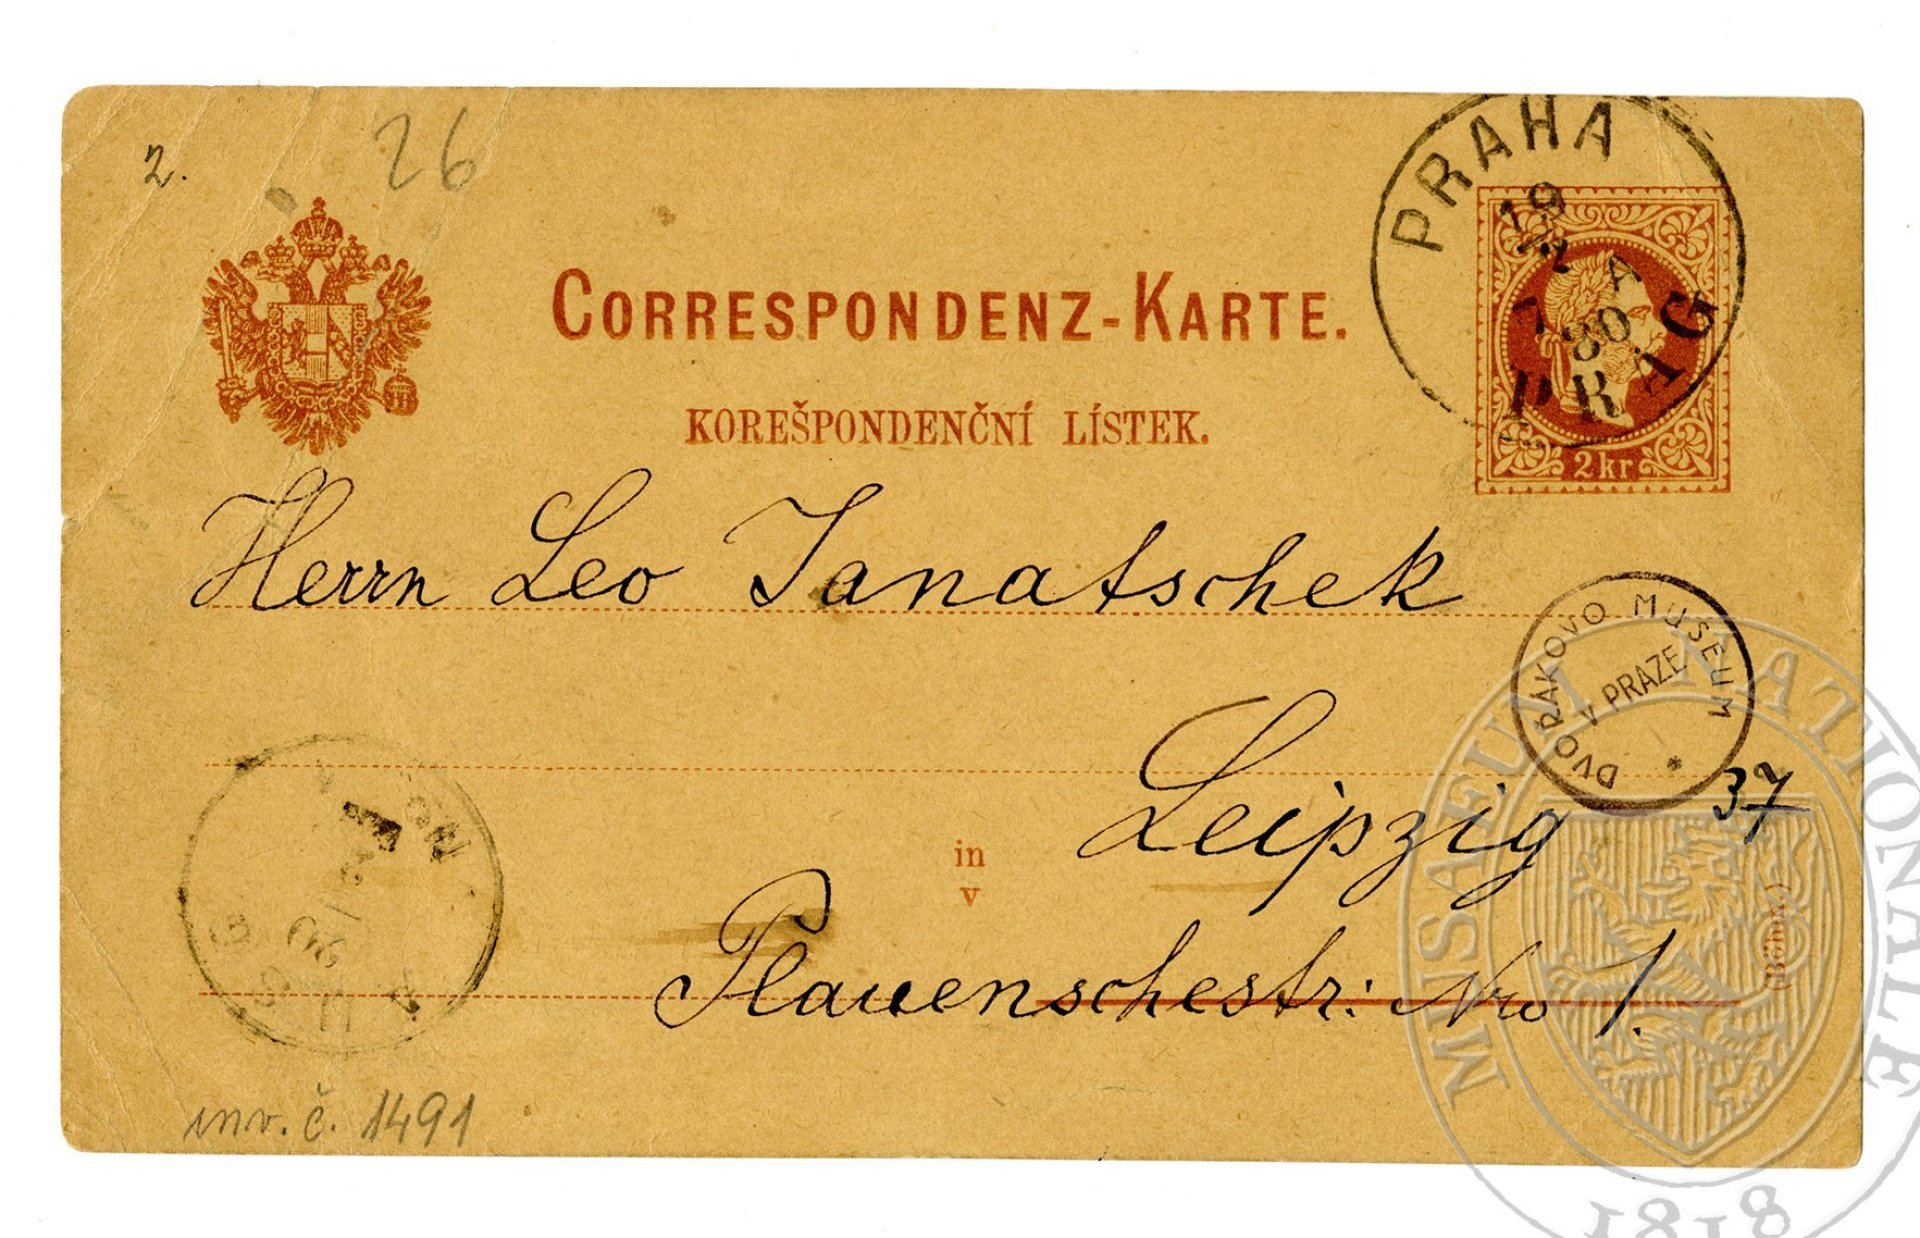 2.
26
CORRESPONDENZ-KARTE.
KOREŠPONDENČNÍ LÍSTEK.
PRAHA
19
2
7 A
80
PRAG
2 kr.
Herrn Leo Janatschek
DVOŘÁKOVO MUSEUM
V PRAZE
*
37
in
v
Leipzig
Plauenschestr: Nro 1.
(Böhm.)
inv. č. 1491
MUSAEUM NATIONALE
1818